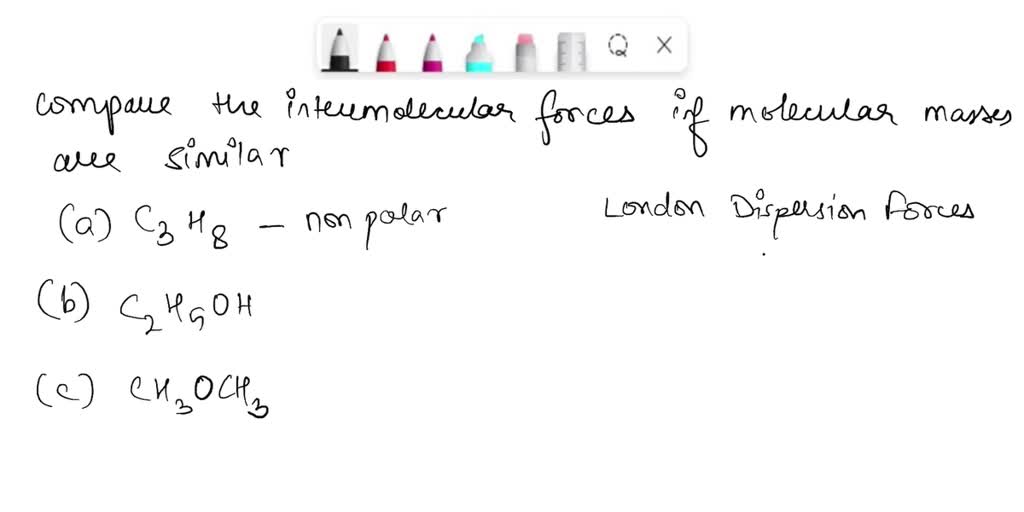 compare the intermolecular forces if molecular masses
are similar
(a) C3H8 - non polar London Dispersion Forces
(b) C2H5OH
(c) CH3OCH3